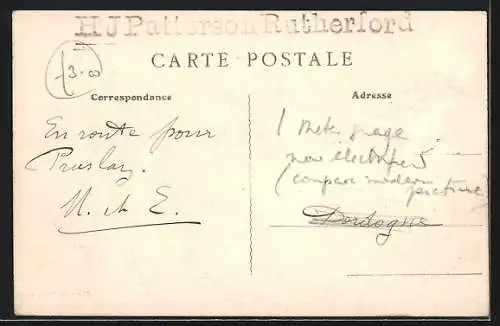 H J Patterson Rutherford
3.00
CARTE POSTALE
Correspondance
En route pour
Pruslay.
M. et E.
Adresse
1 meter guage
now electrified
(compare modern
picture)
Dordogne